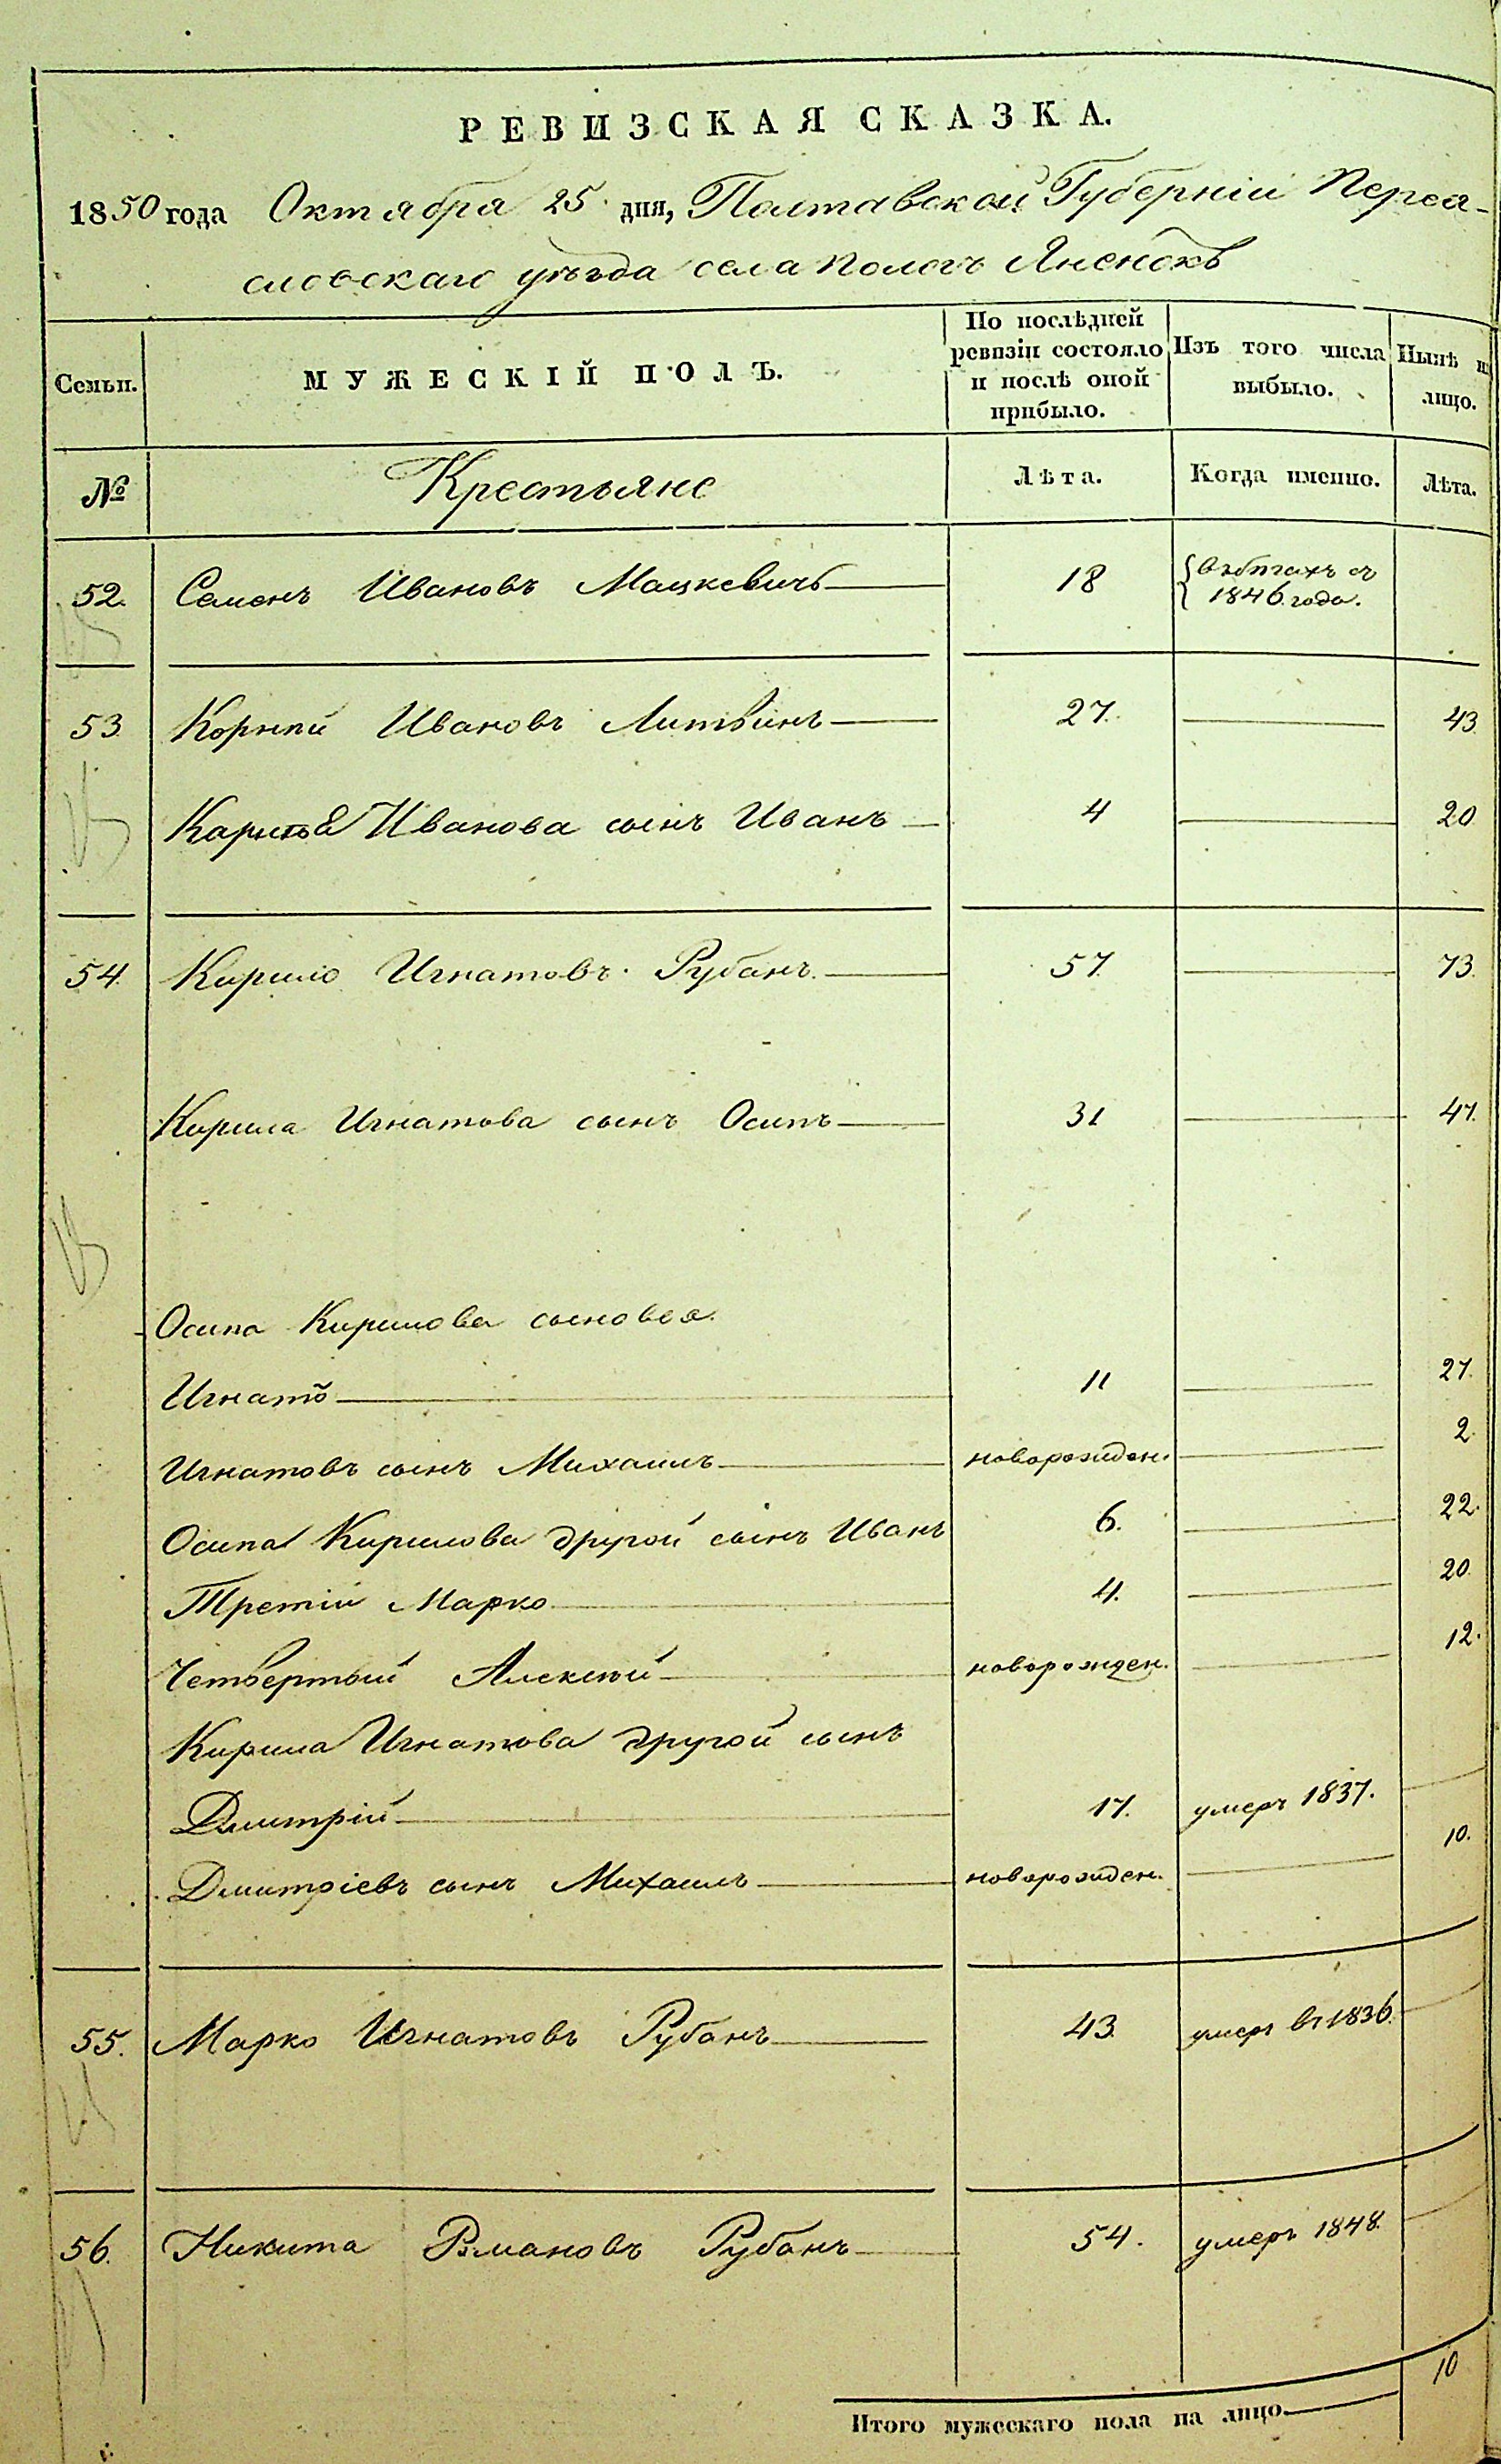 РЕВИЗСКАЯ СКАЗКА.
1850 года Октября 25 дня, Полтавской Губерніи Перея-
словскаго уѣзда села Пологъ Яненокъ
Семьи.
МУЖЕСКІЙ ПОЛЪ.
По послѣдней ревизіи состояло и послѣ оной прибыло.
Изъ того числа выбыло.
Нынѣ на лицо.
№
Крестьяне
Лѣта.
Когда именно.
Лѣта.
52. Семенъ Ивановъ Мацкевичъ 18 Въ бѣгахъ съ
1846 года.
53 Корнѣй Ивановъ Литвинъ 27. 43
Иванова сынъ Иванъ 4 20
54. Кирило Игнатовъ Рубанъ. 57. 73.
Кирила Игнатова сынъ Осипъ 31 47.
Осипа Кирилова сыновья.
Игнатъ 11 27.
Игнатовъ сынъ Михаилъ новорожден. 2.
Осипа Кирилова другой сынъ Иванъ 6. 22.
Третій Марко 4. 20.
Четвертый Алексѣй новорожден. 12.
Кирила Игнатова другой сынъ
Дмитрій 17. умеръ 1837.
Дмитріевъ сынъ Михаилъ новорожден. 10.
55. Марко Игнатовъ Рубанъ 43. умеръ въ 1836.
56. Никита Романовъ Рубанъ 54. умеръ 1848.
Итого мужескаго пола на лицо 10